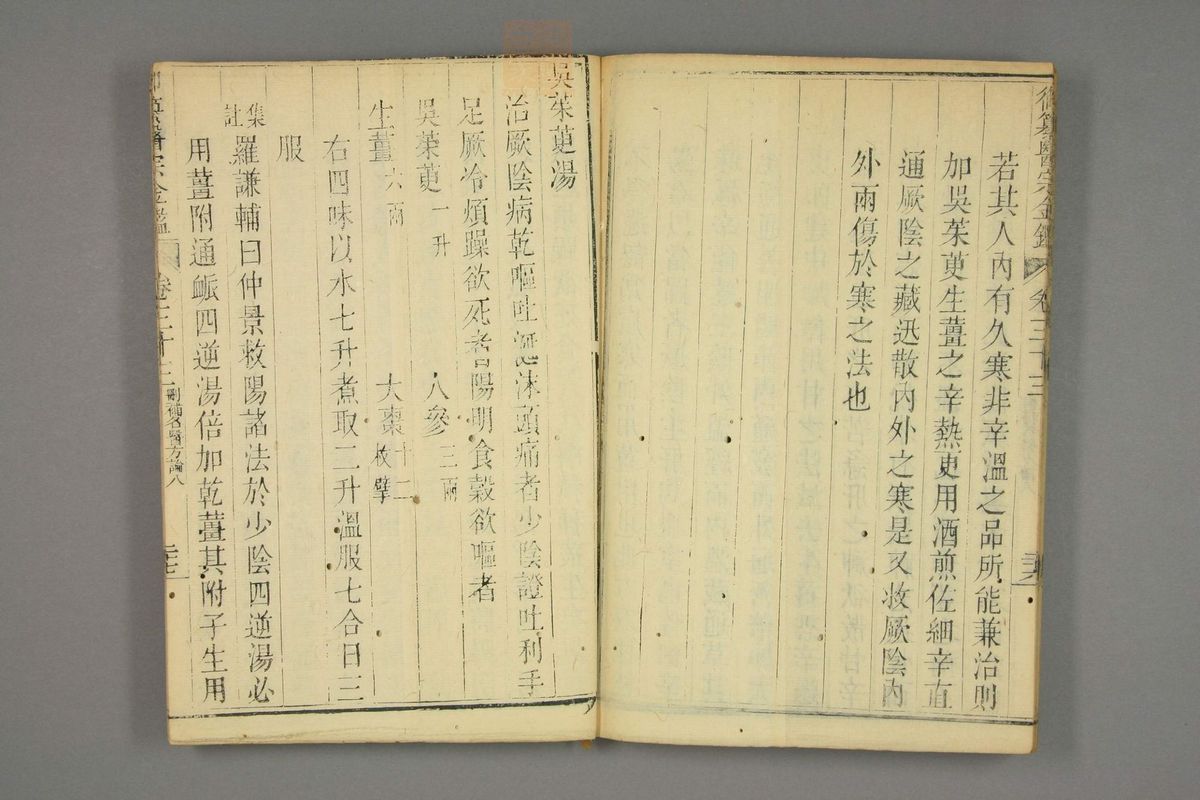 若其人內有久寒非辛溫之品所能兼治則
加吳茱萸生薑之辛熱更用酒煎佐細辛直
通厥陰之藏迅散內外之寒是又救厥陰內
外兩傷於寒之法也
吳茱萸湯
治厥陰病乾嘔吐涎沫頭痛者少陰證吐利手
足厥冷煩躁欲死者陽明食穀欲嘔者
吳茱萸一升 人參三兩
生薑六兩 大棗十二枚擘
右四味以水七升煮取二升溫服七合日三
服
集註 羅謙輔曰仲景救陽諸法於少陰四逆湯必
用薑附通脈四逆湯倍加乾薑其附子生用
御纂醫宗金鑑 卷三十三 刪補名醫方論八 二十七